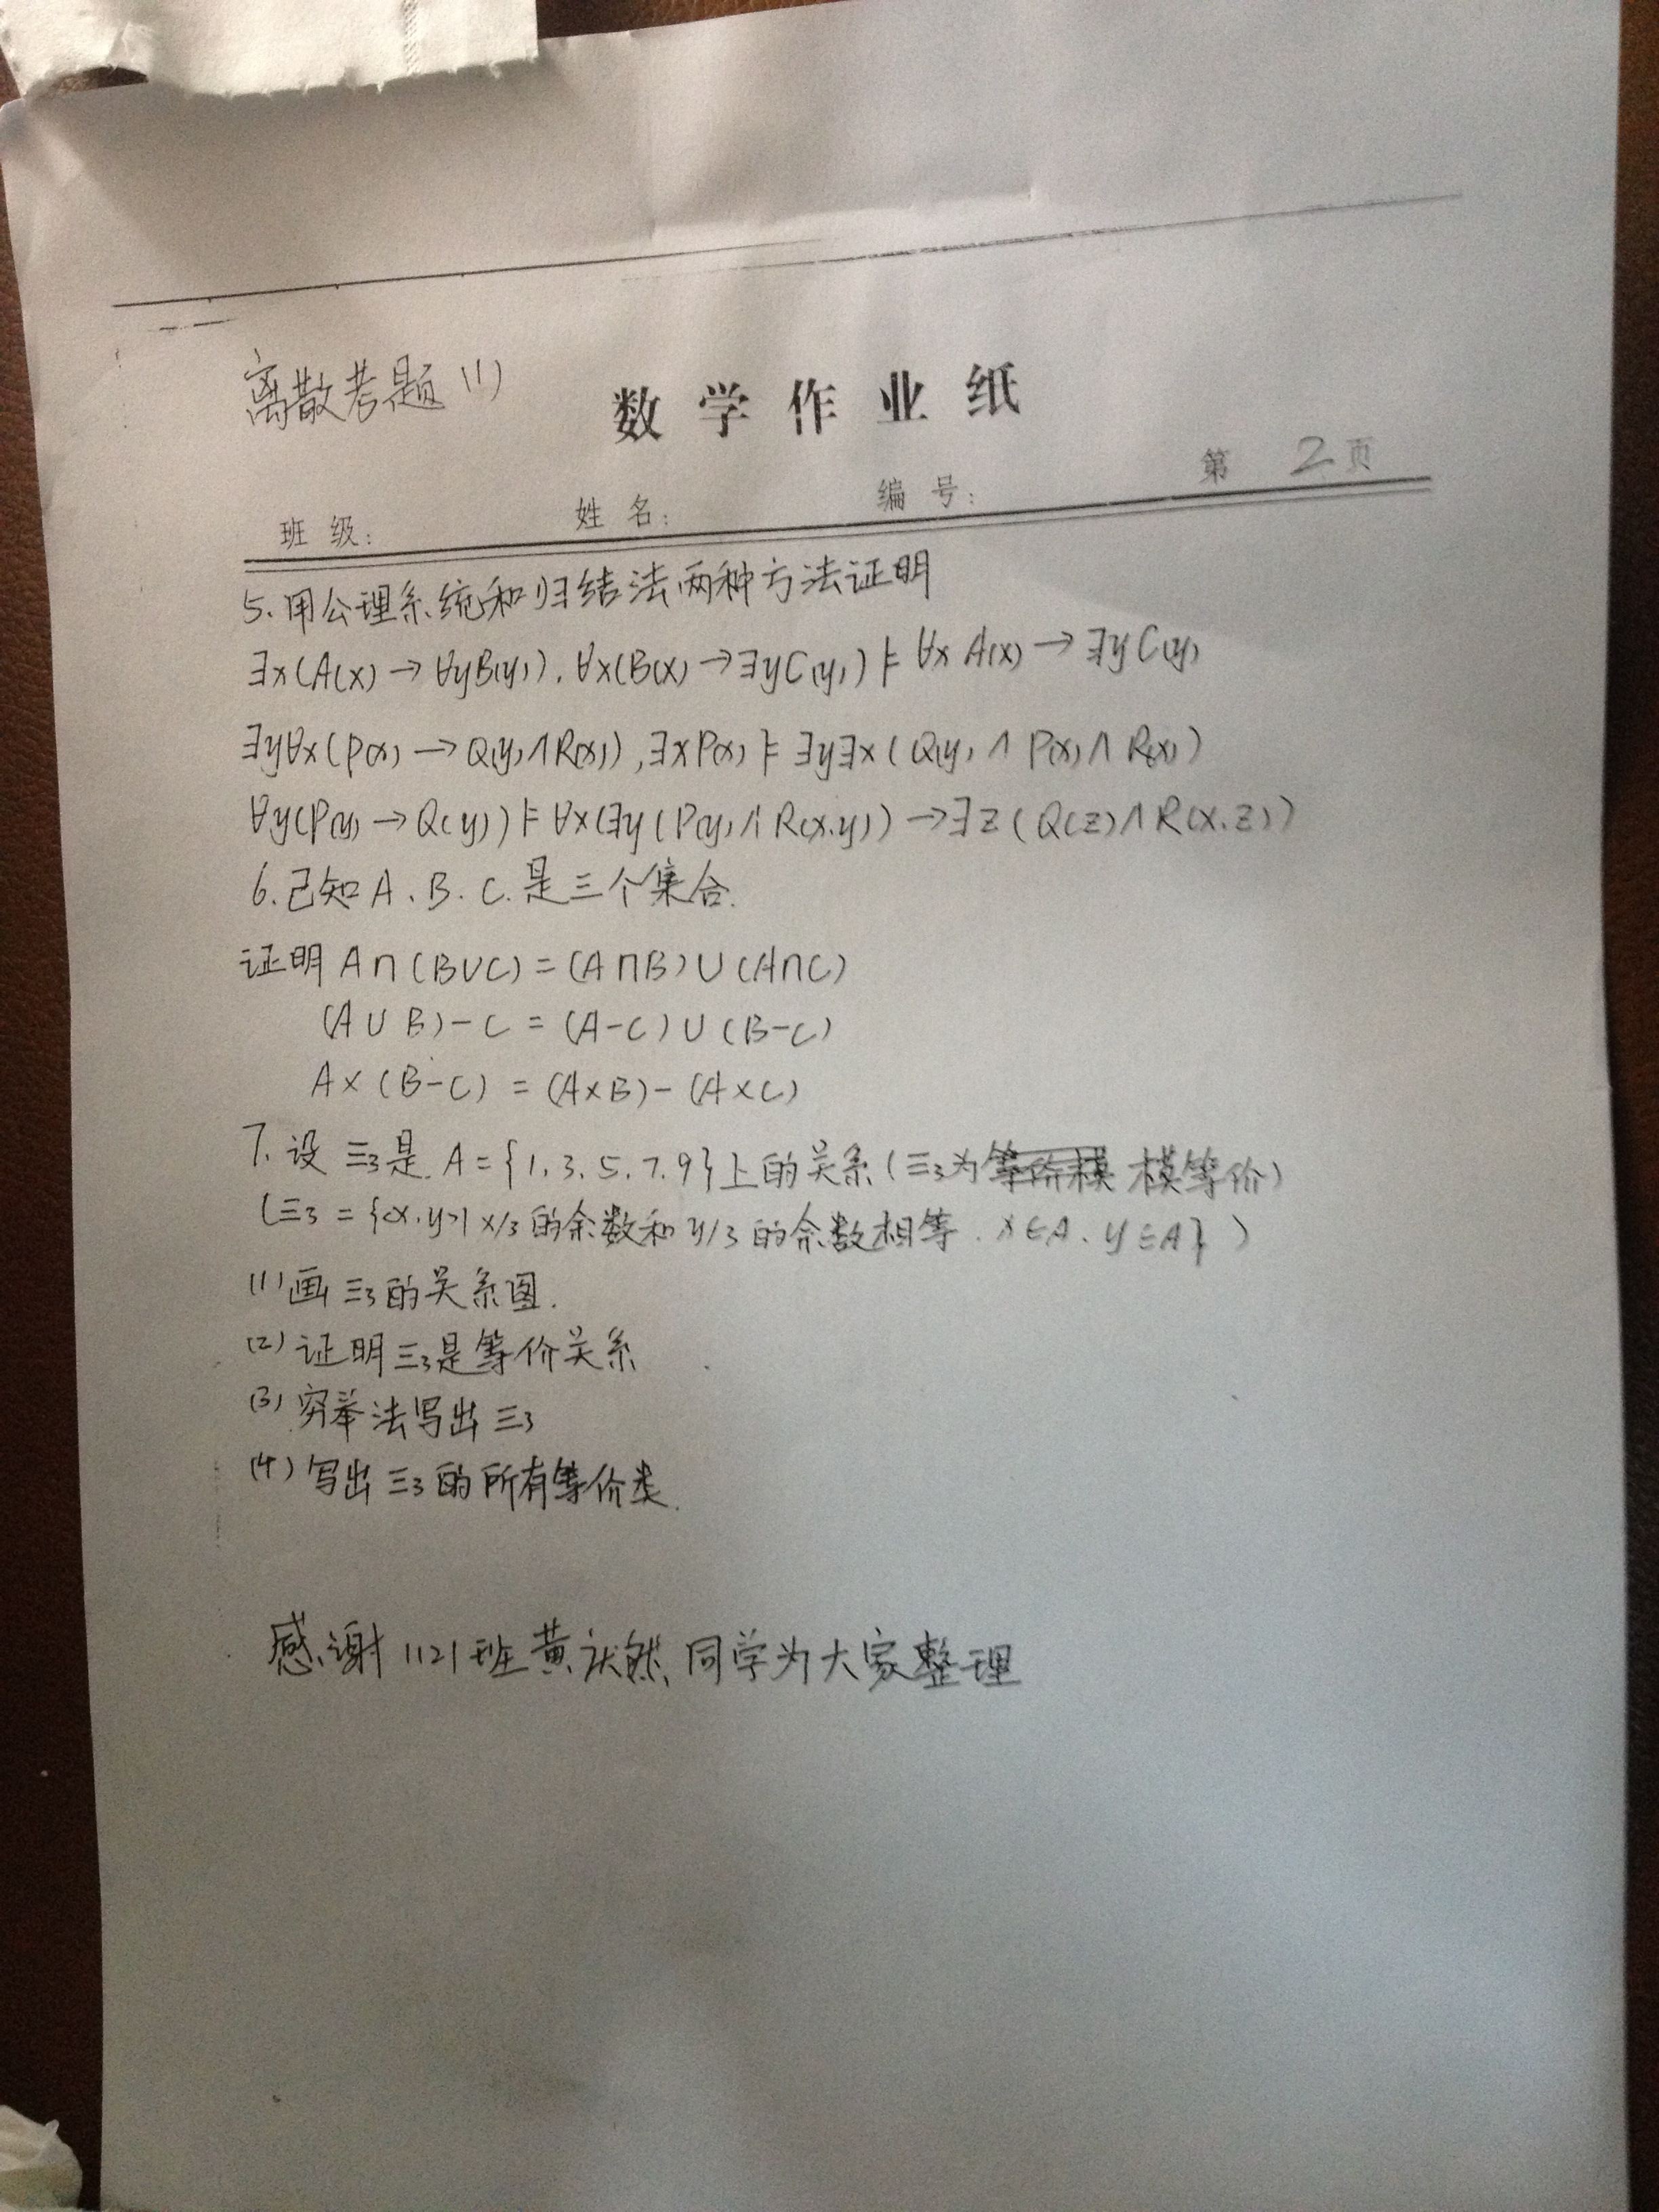 离散考题(1)
数学作业纸
班级: 姓名: 编号: 第 2 页
5. 用公理系统和归结法两种方法证明
∃x(A(x)→∀yB(y)), ∀x(B(x)→∃yC(y)) ⊨ ∀xA(x)→∃yC(y)
∃y∀x(P(x)→Q(y)∧R(x)), ∃xP(x) ⊨ ∃y∃x(Q(y)∧P(x)∧R(x))
∀y(P(y)→Q(y)) ⊨ ∀x(∃y(P(y)∧R(x.y))→∃z(Q(z)∧R(x.z))
6. 已知A、B. C. 是三个集合.
证明 A∩(B∪C)=(A∩B)∪(A∩C)
(A∪B)-C=(A-C)∪(B-C)
A×(B-C)=(A×B)-(A×C)
7. 设≡₃是A={1.3.5.7.9}上的关系(≡₃为模等价)
(≡₃={<x.y>|x/3的余数和y/3的余数相等. x∈A、y∈A})
(1)画≡₃的关系图.
(2)证明≡₃是等价关系
(3)穷举法写出≡₃
(4)写出≡₃的所有等价类.
感谢1121班黄然同学为大家整理